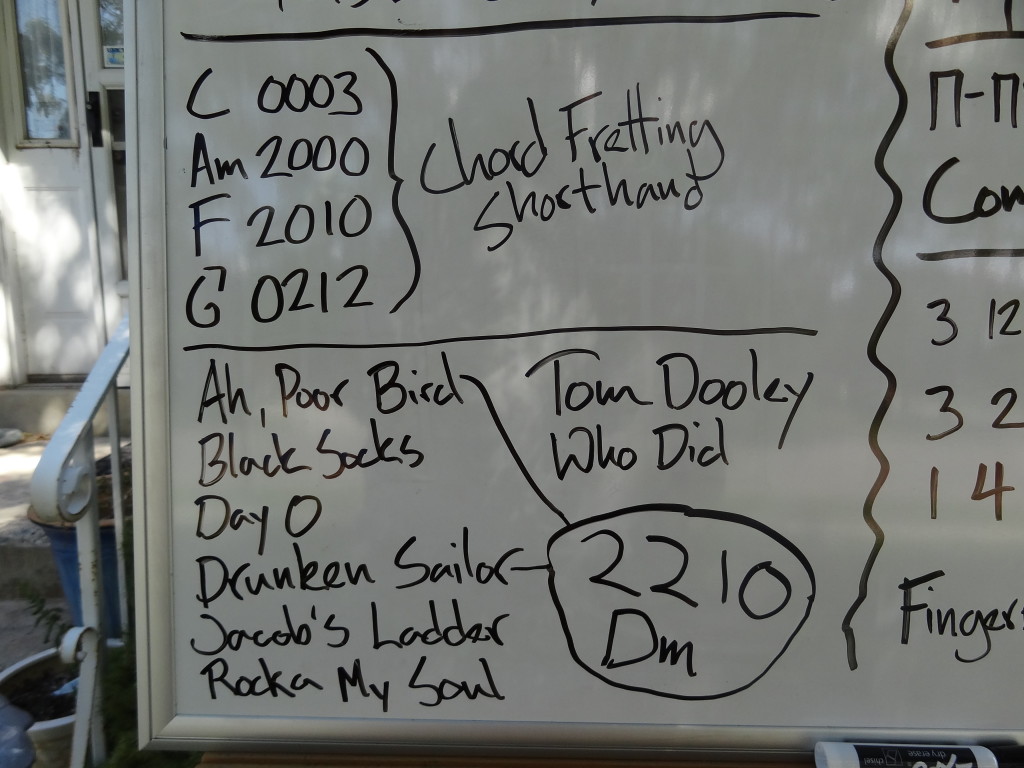 C 0003
Am 2000
F 2010
G 0212
Chord Fretting
Shorthand
Ah, Poor Bird
Black Socks
Day O
Drunken Sailor
Jacob's Ladder
Rocka My Soul
Tom Dooley
Who Did
2210
Dm
Π-Π
Com
3 12
3 2
1 4
Fingers
dry erase